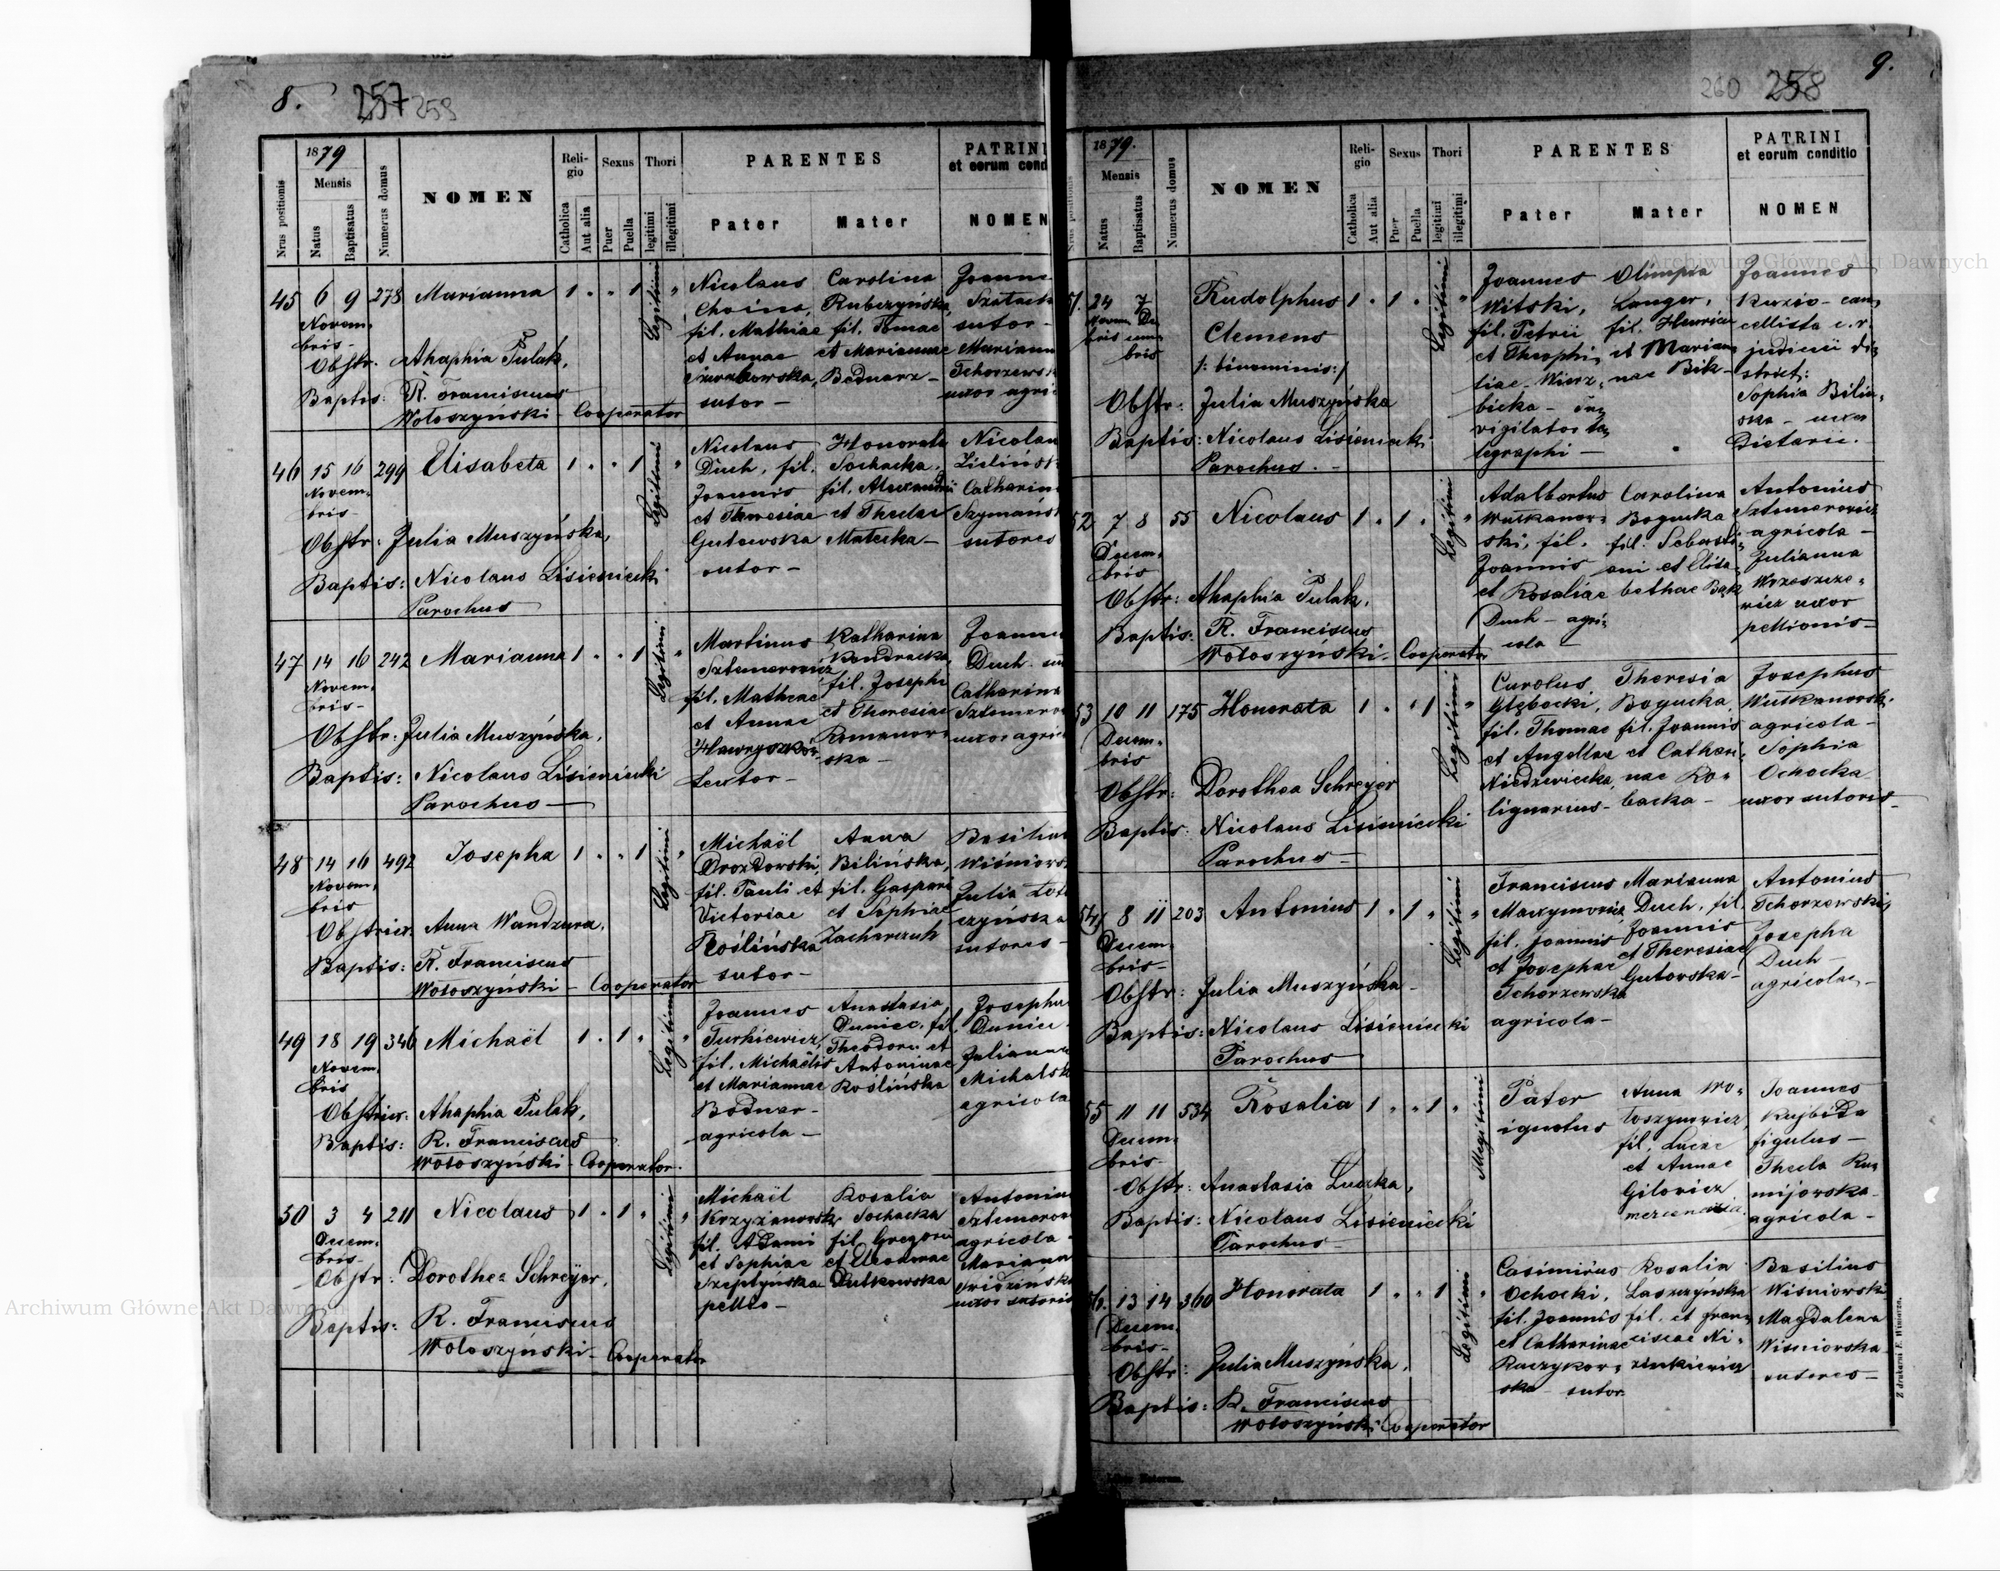 8. 257 259
1879
Nrus positionis
Mensis
Natus
Baptisatus
Numerus domus
NOMEN
Religio
Catholica
Aut alia
Sexus
Puer
Puella
Thori
legitimi
illegitimi
PARENTES
Pater
Mater
PATRINI
et eorum cond
NOMEN
45 6 9 278 Marianna 1 . . 1 Legitimi "
Novem-
bris-
Obstr. Ahaphia Pulak,
Baptis: R. Franciscus
Wołoszyński - Cooperator
Nicolaus
Choina,
fil. Mathiae
et Annae
sutor -
Carolina
Rubczyńska,
fil. Tomae
et Mariannae
Bednarz -
Joanne
Szatack
sutor -
Mariann
Tchorzewsk
uxor agri
46 15 16 299 Elisabeta 1 . . 1 Legitimi "
Novem-
bris-
Obstr: Julia Muszyńska,
Baptis: Nicolaus Lisieniecki
Parochus
Nicolaus
Duch, fil.
Joannis
et Theresiae
Gutowska
sutor -
Honorata
Sochacka,
fil. Alexandri
et Theclae
Matecka -
Nicolau
Zielińsk
Catharin
Szymańsk
sutores
47 14 16 242 Marianna 1 . . 1 Legitimi "
Novem-
bris-
Obstr: Julia Muszyńska,
Baptis: Nicolaus Lisieniecki
Parochus -
Martinus
Sztemerowicz
fil. Matheae
et Annae
sutor -
Katharina
Kondracka,
fil. Josephi
et Theresiae
Romanow-
ska -
Joanne
Duch su
Catharina
Sztemero
uxor agri
48 14 16 492 Josepha 1 . . 1 Legitimi "
Novem-
bris
Obstricx: Anna Wandzura,
Baptis: R. Franciscus
Wołoszyński - Cooperator
Michaël
Drozdowski,
fil. Pauli et
Victoriae
Roślińska
sutor -
Anna
Bilińska,
fil. Gaspari
et Sophiae
Zacharczuk
Basiliu
Wiśniows
Julia Zoł
czyńska
sutores -
49 18 19 346 Michaël 1 . 1 . Legitimi "
Novem-
bris
Obstricx: Ahaphia Pulak,
Baptis: R. Franciscus
Wołoszyński - Cooperator.
Joannes
Turkiewicz,
fil. Michaëlis
et Mariannae
Bodnar -
agricola -
Anastasia
Duniec, fil.
Theodori et
Antoninae
Roślińska
Josephu
Duniec -
Julianna
Michalsk
agricola
50 3 4 211 Nicolaus 1 . 1 . Legitimi "
Decem-
bris-
Obstr: Dorothea Schreyer,
Baptis: R. Franciscus
Wołoszyński - Cooperator
Michaël
Krzyżanowski
fil. Adami
et Sophiae
Szeptyńska
pellio -
Rosalia
Sochacka
fil. Gregorii
et Eleodorae
Dutkowska
Antoniu
Sztemerow
agricola -
Mariann
uxor sutoris
260 258 9.
1879.
Nrus positionis
Mensis
Natus
Baptisatus
Numerus domus
NOMEN
Religio
Catholica
Aut alia
Sexus
Puer
Puella
Thori
legitimi
illegitimi
PARENTES
Pater
Mater
PATRINI
et eorum conditio
NOMEN
51. 24 7 Rudolphus 1 . 1 . Legitimi "
Novem- De-
bris cem-
bris
Clemens
/: binominis:/
Obstr: Julia Muszyńska
Baptis: Nicolaus Lisieniecki
Parochus. -
Joannes
Witski,
fil. Petri
et Theophi-
liae Wierz-
bicka - in-
vigilator te-
legraphi -
Olimpia
Langer,
fil. Henrici
et Marian-
nae Bik -
Joannes
Kuzio - can-
cellista c. r.
judicii di-
strict:
Sophia Bilin-
ska - uxor
Dietarii.
52 7 8 55 Nicolaus 1 . 1 . Legitimi "
Decem-
bris
Obstr: Ahaphia Pulak,
Baptis: R. Franciscus
Wołoszyński - Cooperator
Adalbertus
Wułkanow-
ski, fil.
Joannis
et Rosaliae
Duch - agri-
cola -
Carolina
Bogucka
fil. Sebasti-
ani et Elisa-
bethae Bąk
Antonius
Sztemerowicz
agricola -
Julianna
Wrzeszcze-
wicz uxor
pellionis -
53 10 11 175 Honorata 1 . . 1 Legitimi "
Decem-
bris
Obstr: Dorothea Schreyer
Baptis: Nicolaus Lisieniecki
Parochus -
Carolus
Głębocki,
fil. Thomae
et Angellae
Niedzwiecka,
lignarius -
Theresia
Bogucka,
fil. Joannis
et Cathari-
nae Ko-
backa -
Josephus
Wułkanowski,
agricola -
Sophia
Ochocka
uxor sutoris -
54 8 11 203 Antonius 1 . 1 . Legitimi "
Decem-
bris-
Obstr: Julia Muszyńska -
Baptis: Nicolaus Lisieniecki
Parochus
Franciscus
Maxymowicz
fil. Joannis
et Josephae
Tchorzewska
agricola -
Marianna
Duch, fil.
Joannis
et Theresiae
Gutowska -
Antonius
Tchorzewski,
Josepha
Duch -
agricolae -
55 11 11 534 Rosalia 1 . . 1 Illegitimi
Decem-
bris-
Obstr: Anastasia Łucka,
Baptis: Nicolaus Lisieniecki
Parochus -
Pater
ignotus
Anna Wo-
łoszynowicz
fil. Lucae
et Annae
Gilowicz
mercenaria.
Joannes
Kujbida
figulus -
Thecla Ku-
mijowska
agricola -
56. 13 14 360 Honorata 1 . . 1 Legitimi "
Decem-
bris-
Obstr: Julia Muszyńska,
Baptis: R. Franciscus
Wołoszyński Cooperator
Casimirus
Ochocki,
fil. Joannis
et Catharinae
Raczykow-
ska - sutor
Rosalia
Laszzyńska
fil. et Fran-
ciscae Ni-
zinkiewicz
Basilius
Wiśniowski
Magdalena
Wiśniowska
sutores -
Z drukarni E. Winiarza.
Archiwum Główne Akt Dawnych
Archiwum Główne Akt Dawnych